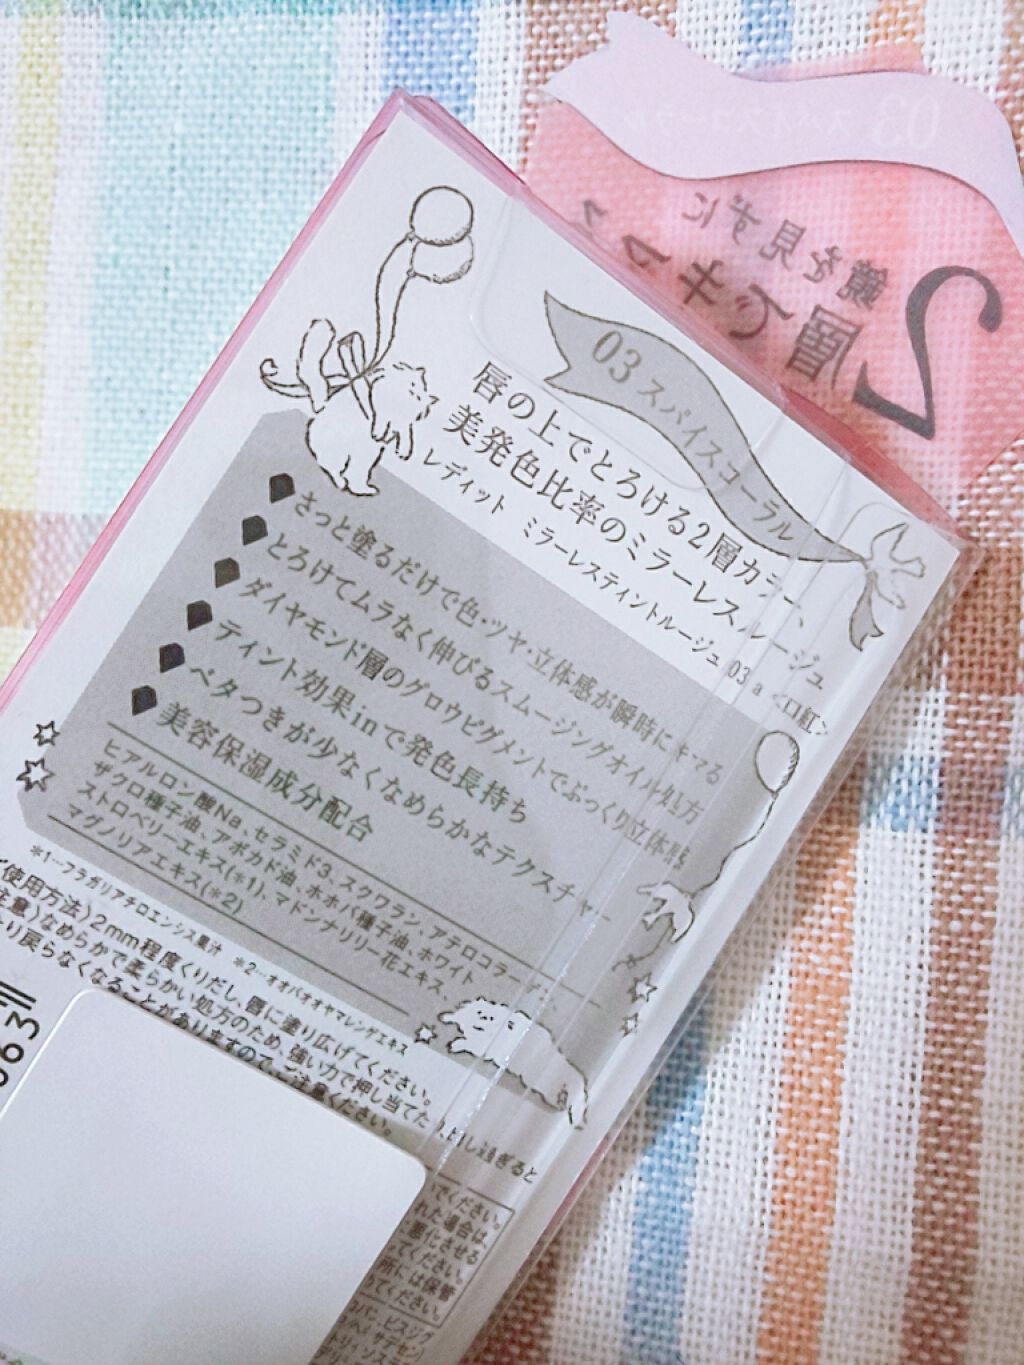 03 スパイスコーラル
鏡を見ずに
2層でキマ
03 スパイスコーラル
唇の上でとろける2層カラー、
美発色比率のミラーレスルージュ
レディット ミラーレスティントルージュ 03 a <口紅>
さっと塗るだけで色・ツヤ・立体感が瞬時にキマる
とろけてムラなく伸びるスムージングオイル処方
ダイヤモンド層のグロウピグメントでぷっくり立体感
ティント効果inで発色長持ち
ベタつきが少なくなめらかなテクスチャー
美容保湿成分配合
ヒアルロン酸Na、セラミド3、スクワラン、アテロコラーゲン、
ザクロ種子油、アボカド油、ホホバ種子油、ホワイト
ストロベリーエキス(*1)、マドンナリリー花エキス、
マグノリアエキス(*2)
*1…フラガリアチロエンシス果汁 *2…オオバオオヤマレンゲエキス
使用方法〉2mm程度くりだし、唇に塗り広げてください。
注意〉なめらかで柔らかい処方のため、強い力で押し当てたり、出し過ぎると
戻らなくなることがありますので、ご注意ください。
でください。
れた場合は、
悪化させる
てください。
所には保管
てください。